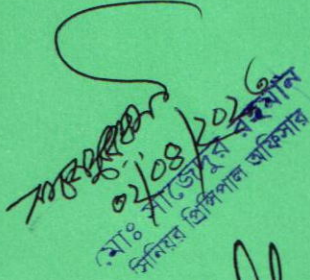 ০২/০৪/২০২৬
মোঃ সাজেদুর রহমান
সিনিয়র প্রিন্সিপাল অফিসার